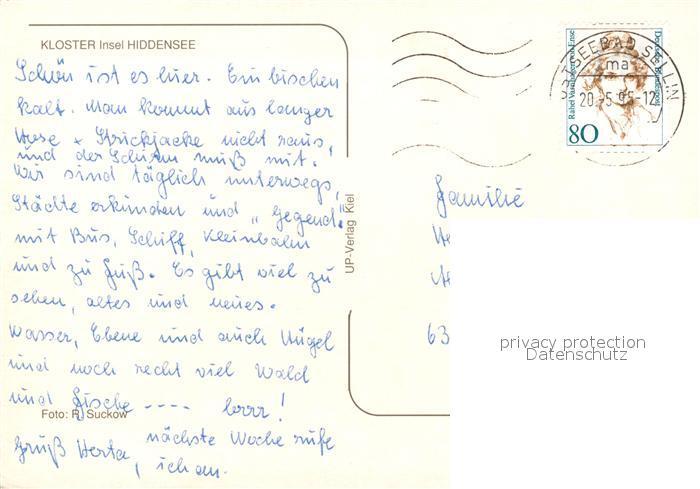 KLOSTER Insel HIDDENSEE
Schön ist es hier. Ein bischen
kalt. Man kommt aus langer
Hose + Strickjacke nicht raus,
und der Schirm muß mit.
Wir sind täglich unterwegs,
Städte erkunden und „Gegend"
mit Bus, Schiff, Kleinbahn
und zu Fuß. Es gibt viel zu
sehen, altes und neues.
Wasser, Ebene und auch Hügel
und noch recht viel Wald
und Fische ---- brrr!
Foto: R. Suckow
Gruß Herta, nächste Woche rufe
ich an.
UP-Verlag Kiel
Deutsche Bundespost
Rahel Varnhagen von Ense
80
OSTSEEBAD SELLIN
ma
20.-5.95-12
Familie
63
privacy protection
Datenschutz